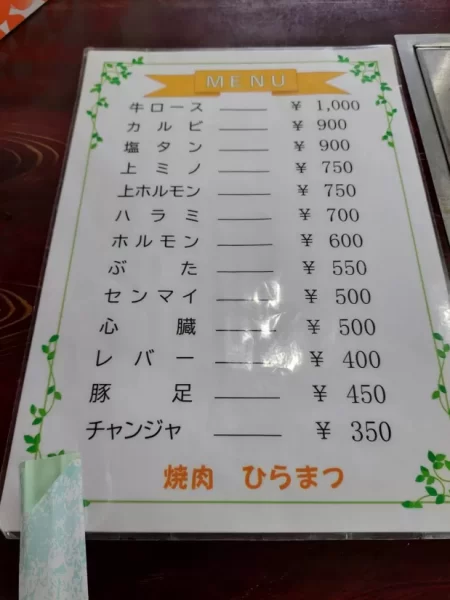 MENU
牛ロース ¥ 1,000
カルビ ¥ 900
塩タン ¥ 900
上ミノ ¥ 750
上ホルモン ¥ 750
ハラミ ¥ 700
ホルモン ¥ 600
ぶた ¥ 550
センマイ ¥ 500
心臓 ¥ 500
レバー ¥ 400
豚足 ¥ 450
チャンジャ ¥ 350
焼肉 ひらまつ